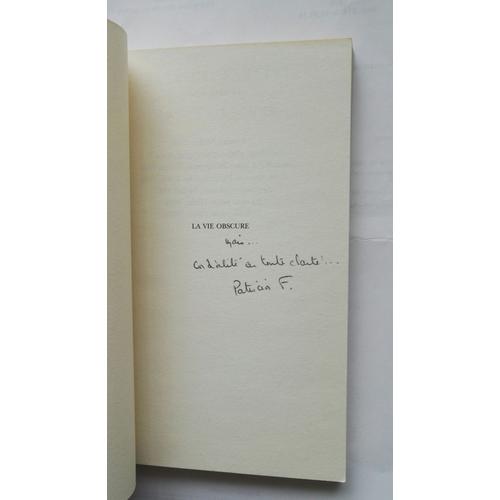 LA VIE OBSCURE
mais...
Cordialité en toute clarté...
Patricia F.